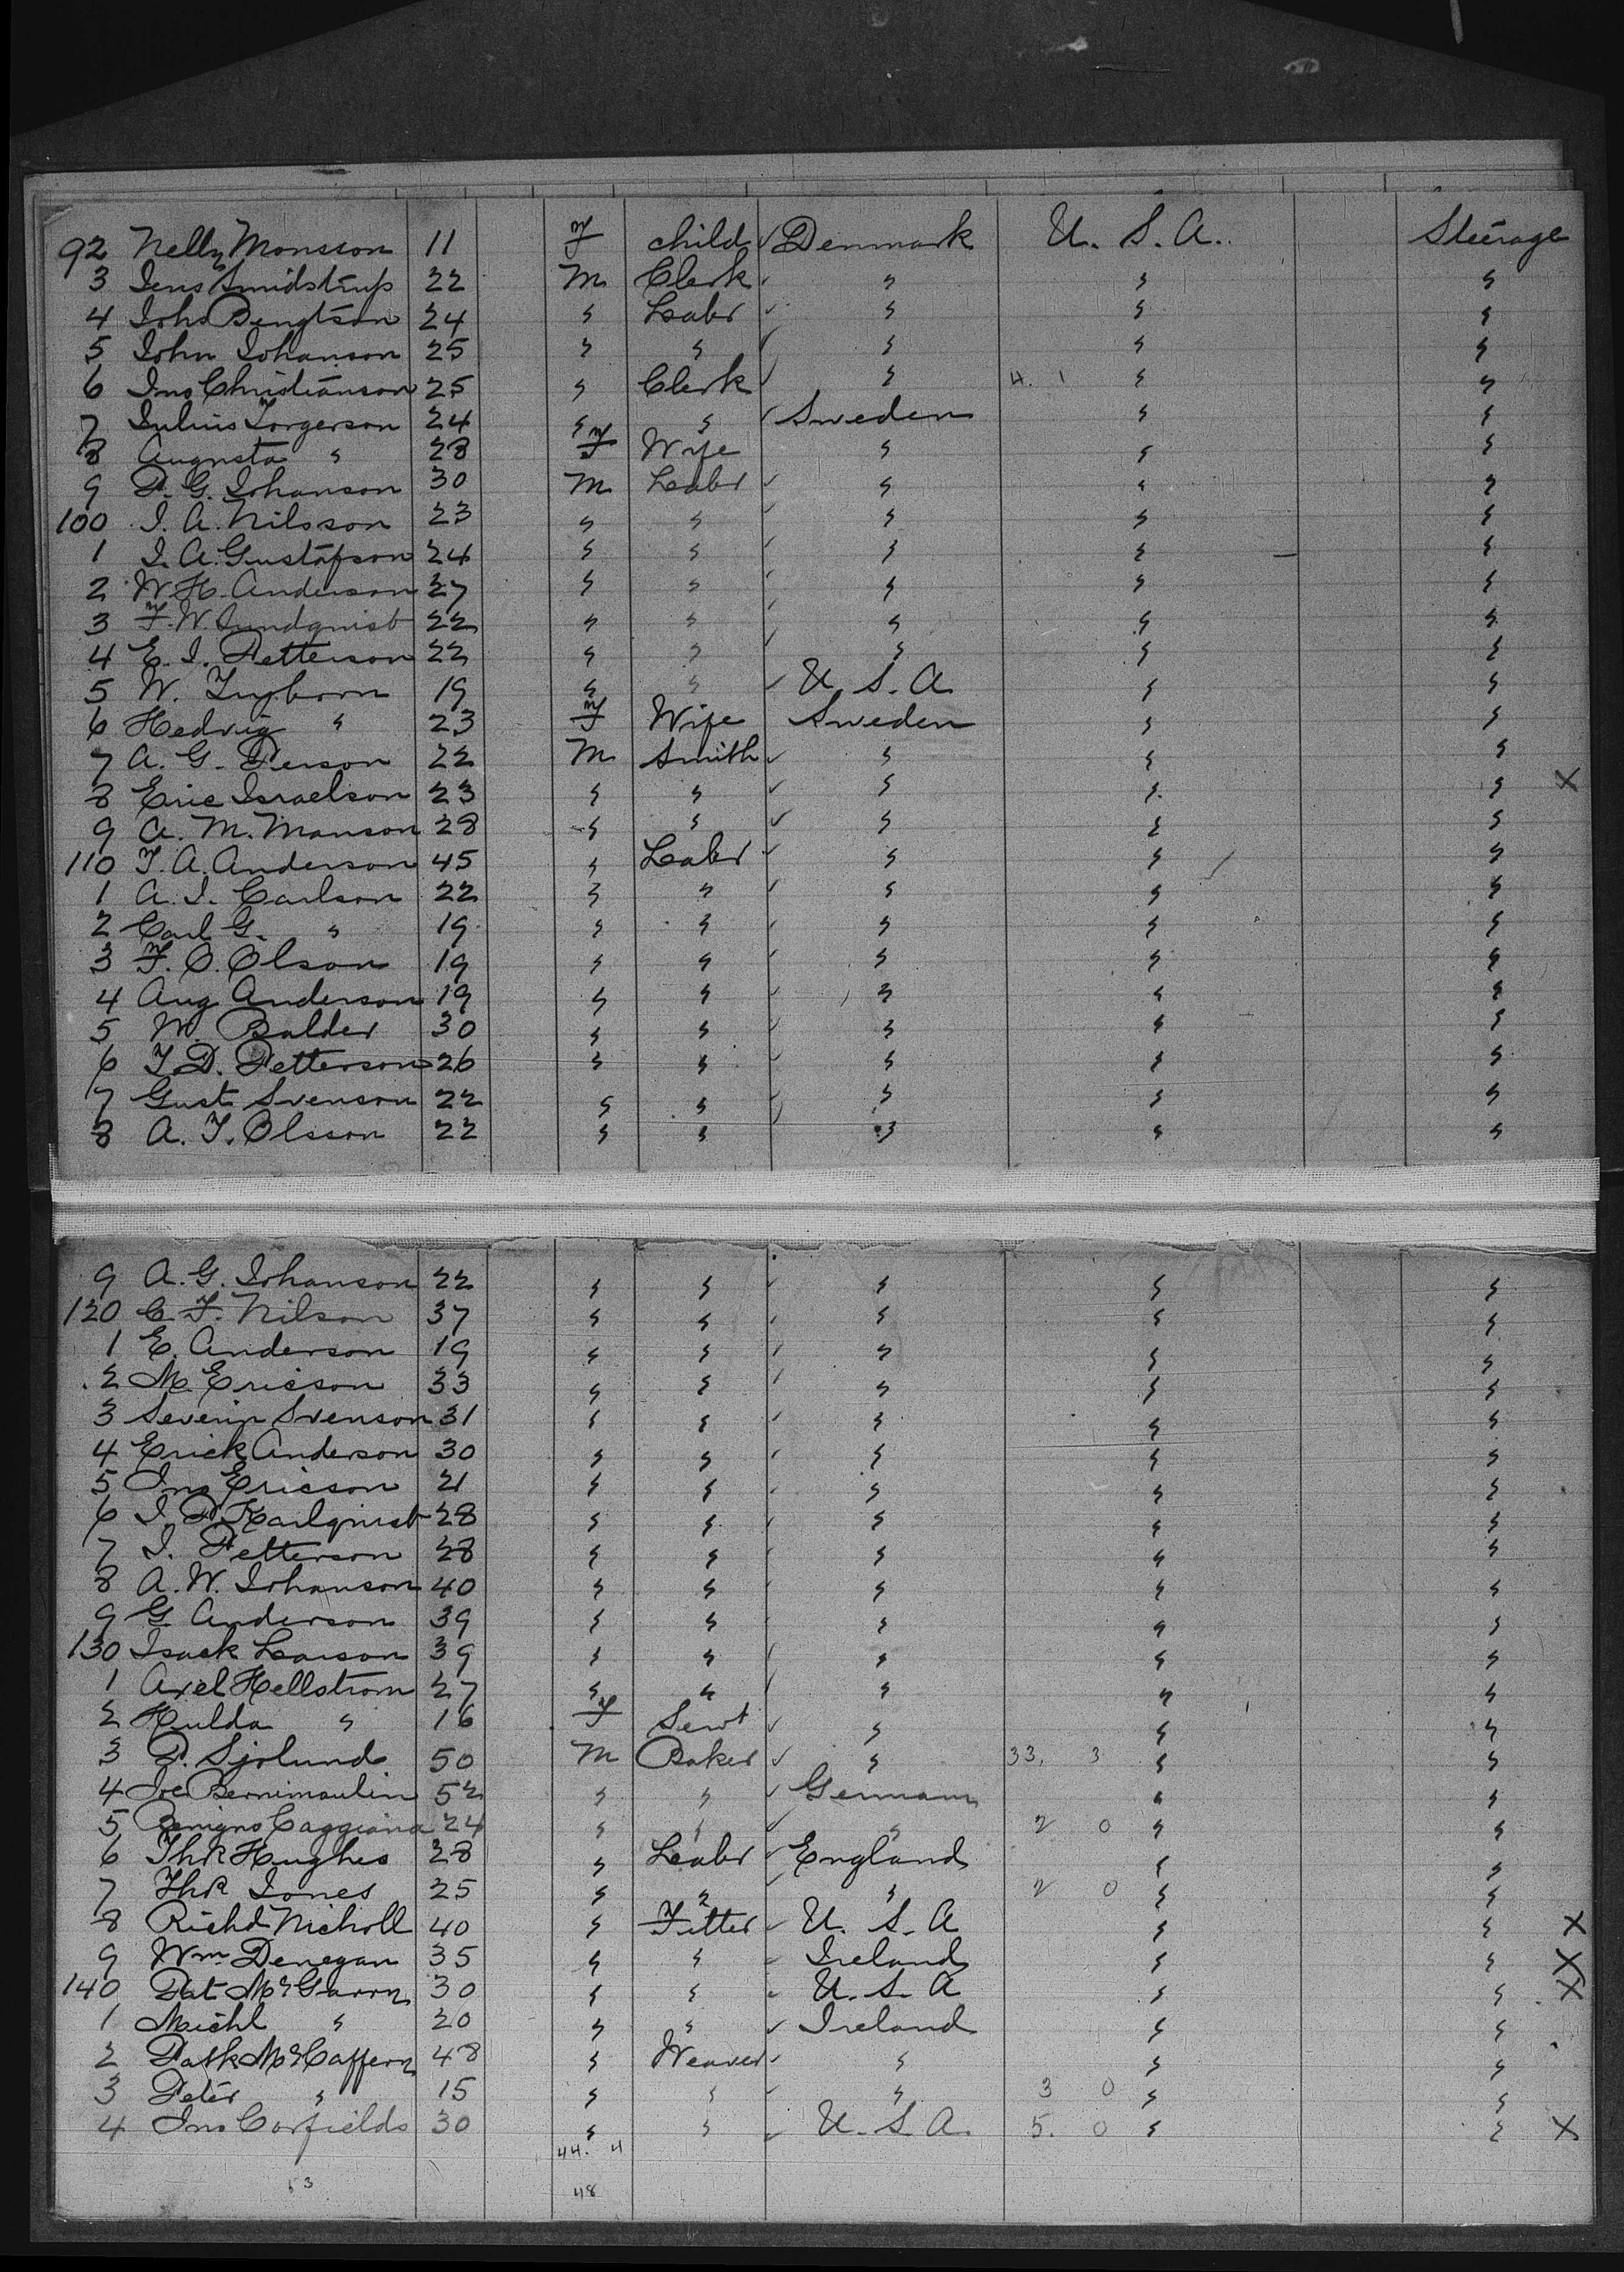 92 Nelly Monsson 11 F child ✓ Denmark U. S. A. Steerage
3 Jens Smidstrup 22 M Clerk ✓ " " "
4 Joh Bengtson 24 " Labr ✓ " " "
5 John Johanson 25 " " ✓ " " "
6 Jno Christianson 25 " Clerk ✓ " 4. 1 " "
7 Julius Torgerson 24 " " ✓ Sweden " "
8 Augusta " 28 F Wife " " "
9 P. G. Johanson 30 M Labr ✓ " " "
100 J. A. Nilsson 23 " " ✓ " " "
1 J. A. Gustafson 24 " " ✓ " " "
2 W. H. Anderson 27 " " ✓ " " "
3 F. W. Lundquist 22 " " ✓ " " "
4 E. J. Petterson 22 " " ✓ " " "
5 W. 19 " " ✓ U. S. A " "
6 Hedvig " 23 F Wife Sweden " "
7 A. G. Person 22 M Smith ✓ " " "
8 Eric Israelson 23 " " ✓ " " " X
9 A. M. Manson 28 " " ✓ " " "
110 T. A. Anderson 45 " Labr ✓ " " "
1 A. J. Carlson 22 " " ✓ " " "
2 Carl G. " 19 " " ✓ " " "
3 F. O. Olson 19 " " ✓ " " "
4 Aug Anderson 19 " " ✓ " " "
5 W. Balder 30 " " ✓ " " "
6 T. D. Petterson 26 " " ✓ " " "
7 Gust Svenson 22 " " ✓ " " "
8 A. T. Olsson 22 " " " " "
9 A. G. Johanson 22 " " ✓ " " "
120 C. F. Nilson 37 " " ✓ " " "
1 E. Anderson 19 " " ✓ " " "
2 M. Ericson 33 " " ✓ " " "
3 Severin Svenson 31 " " ✓ " " "
4 Erick Anderson 30 " " ✓ " " "
5 Jno Ericson 21 " " ✓ " " "
6 J. P. Karlquist 28 " " ✓ " " "
7 J. Petterson 28 " " ✓ " " "
8 A. W. Johanson 40 " " ✓ " " "
9 G. Anderson 39 " " ✓ " " "
130 Isack Larson 39 " " ✓ " " "
1 Axel Hellstrom 27 " " ✓ " " "
2 Hulda " 16 F Servt ✓ " " "
3 P. Sjolund 50 M Baker ✓ " 33. 3 " "
4 Joe Bernimaulin 52 " " ✓ Germany " "
5 Benigno Caggiana 24 " " ✓ " 2 0 " "
6 Thos Hughes 28 " Labr ✓ England " "
7 Thos Jones 25 " " ✓ " 2 0 " "
8 Richd Nicholl 40 " Fitter ✓ U. S. A " " X
9 Wm Denegan 35 " " ✓ Ireland " " X
140 Pat McGarry 30 " " ✓ U. S. A " " X
1 Michl " 20 " " ✓ Ireland " "
2 Patk McCaffery 48 " Weaver ✓ " " "
3 Peter " 15 " " ✓ " 3 0 " "
4 Jno Corfields 30 " " ✓ U. S. A. 5. 0 " " X
44. 4
53 48